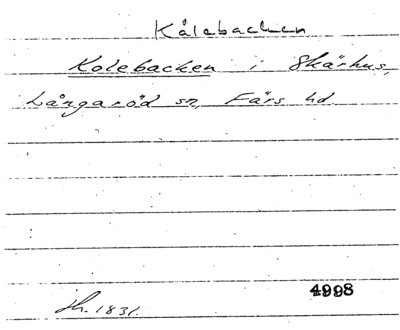 Kålebacken
Kolebacken i Skärhus,
Långaröd sn, Färs hd.
4998
Sk. 1831.